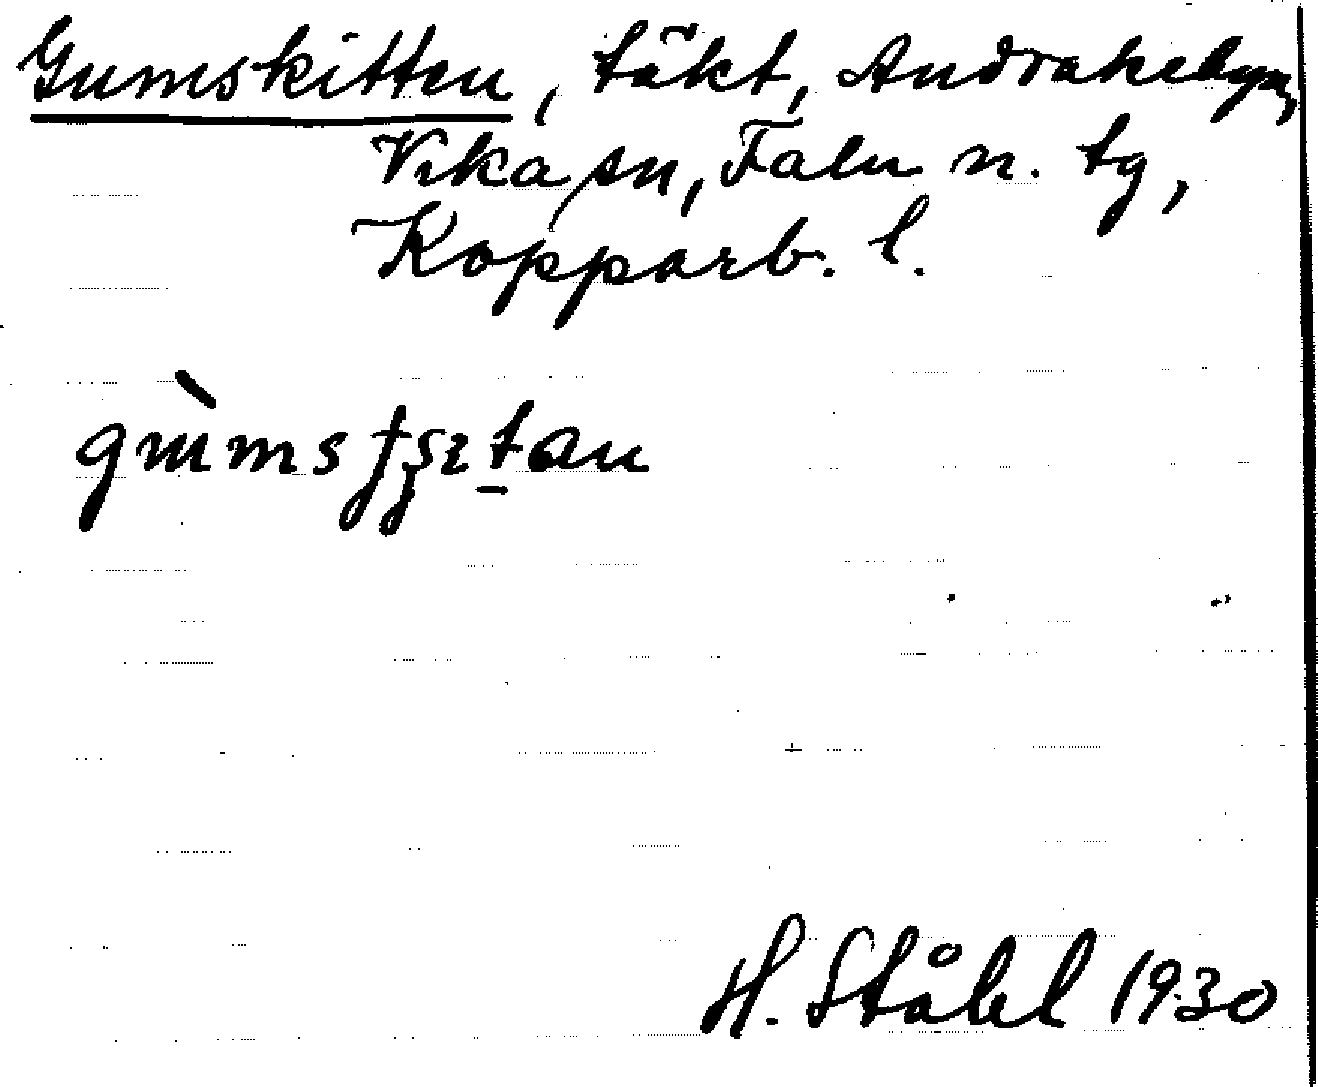 Gumskitten, täkt, Andrakebyn,
Vika sn, Falu n. tg,
Kopparb. l.
H. Ståhl 1930